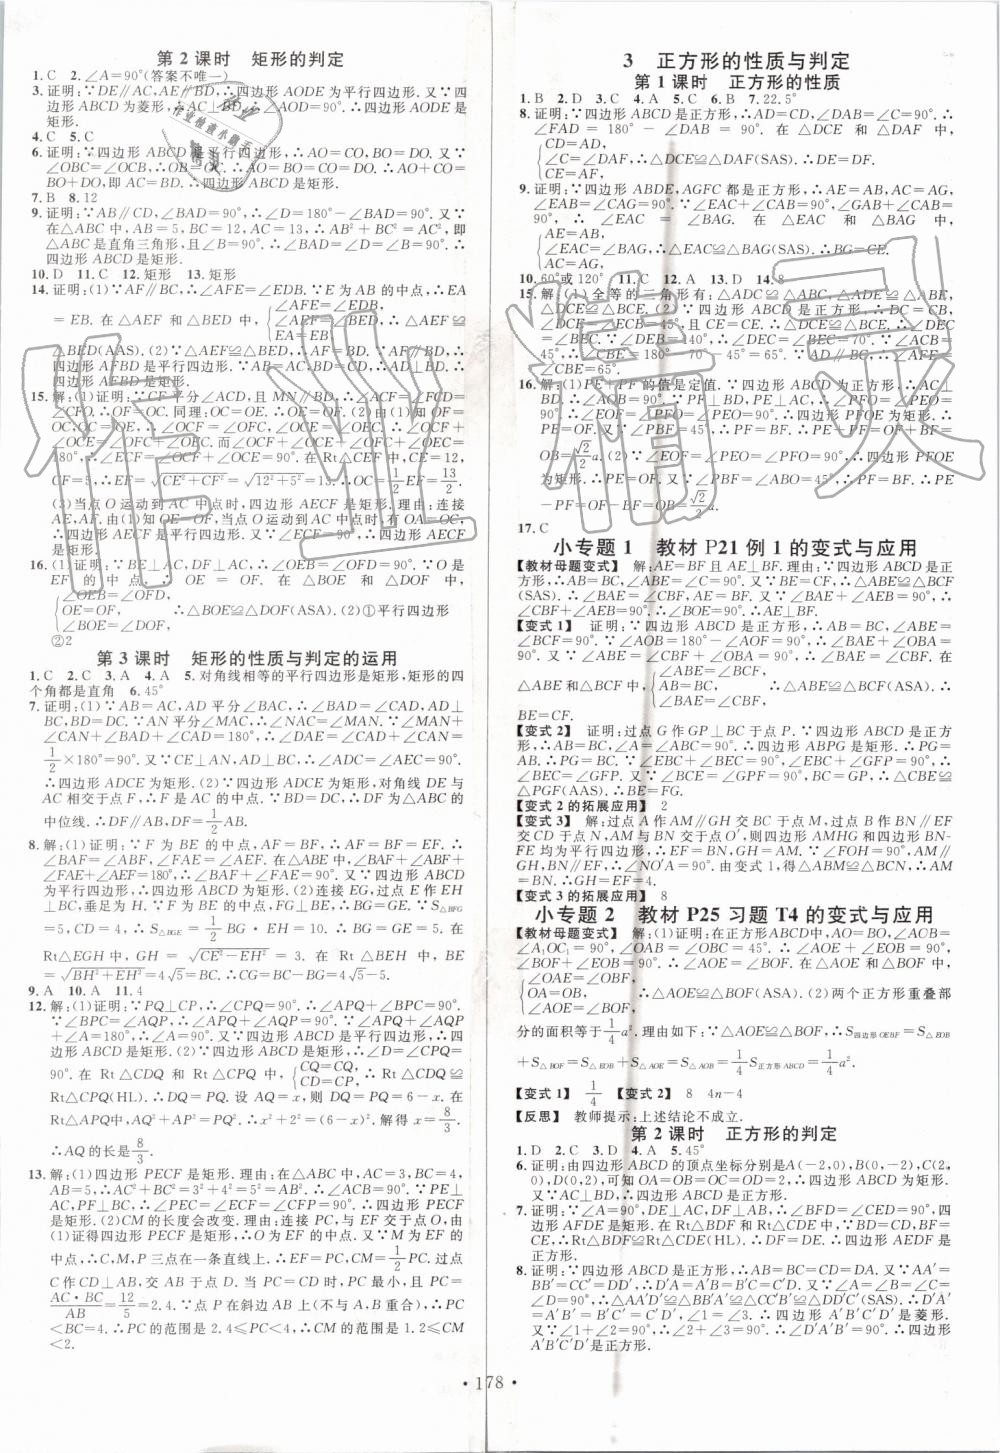 第2课时　矩形的判定
1. C　2. ∠A=90°(答案不唯一)
3. 证明:∵DE∥AC,AE∥BD,∴四边形AODE为平行四边形.又∵四
边形ABCD为菱形,∴AC⊥BD.∴∠AOD=90°.∴四边形AODE是
矩形.
4. C　5. C
6. 证明:∵四边形ABCD是平行四边形,∴AO=CO,BO=DO.又∵
∠OBC=∠OCB,∴OB=OC.∴AO=CO=BO=DO.∴AO+CO=
BO+DO,即AC=BD.∴四边形ABCD是矩形.
7. B　8. 12
9. 证明:∵AB∥CD,∠BAD=90°,∴∠D=180°-∠BAD=90°.又∵
在△ABC中,AB=5,BC=12,AC=13,∴AB²+BC²=AC²,即
△ABC是直角三角形,∴∠B=90°.∴∠BAD=∠D=∠B=90°.∴四
边形ABCD是矩形.
10. D　11. C　12. 矩形　13. 矩形
14. 证明:(1)∵AF∥BC,∴∠AFE=∠EDB.∵E为AB的中点,∴EA
∠AFE=∠EDB,
=EB.在△AEF和△BED中,∠AEF=∠BED,∴△AEF≌
EA=EB,
△BED(AAS).(2)∵△AEF≌△BED,∴AF=BD.∵AF∥BD,∴四
边形AFBD是平行四边形.∵AB=AC,BD=CD,∴AD⊥BD.∴四
边形AFBD是矩形.
15. 解:(1)证明:∵CF平分∠ACD,且MN∥BD,∴∠ACF=∠FCD=
∠CFO.∴OF=OC.同理:OC=OE.∴OE=OF.(2)由(1)知OF=
OC=OE,∴∠OCF=∠OFC,∠OCE=∠OEC.∴∠OCF+
∠OCE=∠OFC+∠OEC.而∠OCF+∠OCE+∠OFC+∠OEC=
180°,∴∠ECF=∠OCF+∠OCE=90°.在Rt△CEF中,CE=12,
CF=5,∴EF=√(CE²+CF²)=√(12²+5²)=13.∴OC=1/2EF=13/2.
(3)当点O运动到AC中点时,四边形AECF是矩形.理由:连接
AE,AF.由(1)知OE=OF,当点O运动到AC中点时,有OA=OC,
∴四边形AECF是平行四边形.又∵∠ECF=90°,∴四边形AECF
是矩形.
16. (1)证明:∵BE⊥AC,DF⊥AC,∴∠OEB=∠OFD=90°.∵O是
EF的中点,∴OE=OF.在△BOE和△DOF中,
∠OEB=∠OFD,
OE=OF,　∴△BOE≌△DOF(ASA).(2)①平行四边形
∠BOE=∠DOF,
②2
第3课时　矩形的性质与判定的运用
1. C　2. C　3. A　4. A　5. 对角线相等的平行四边形是矩形,矩形的四
个角都是直角　6. 45°
7. 证明:(1)∵AB=AC,AD平分∠BAC,∴∠BAD=∠CAD,AD⊥
BC,BD=DC.∵AN平分∠MAC,∴∠NAC=∠MAN.∵∠MAN+
∠CAN+∠BAD+∠CAD=180°,∴∠DAE=∠DAC+∠CAN=
1/2×180°=90°.又∵CE⊥AN,AD⊥BC,∴∠ADC=∠AEC=90°.
∴四边形ADCE为矩形.(2)∵四边形ADCE为矩形,对角线DE与
AC相交于点F,∴F是AC的中点.∵BD=DC,∴DF为△ABC的
中位线.∴DF∥AB,DF=1/2AB.
8. 解:(1)证明:∵F为BE的中点,AF=BF,∴AF=BF=EF.∴
∠BAF=∠ABF,∠FAE=∠AEF.在△ABE中,∠BAF+∠ABF+
∠FAE+∠AEF=180°,∴∠BAF+∠FAE=90°.又∵四边形ABCD
为平行四边形,∴四边形ABCD为矩形.(2)连接EG,过点E作EH
⊥BC,垂足为H.∵F为BE的中点,FG⊥BE,∴BG=GE.∵S△BFG
=5,CD=4,∴S△BGE=1/2BG·EH=10.∴BG=GE=5.在
Rt△EGH中,GH=√(CE²-EH²)=3.在Rt△BEH中,BE
=√(BH²+EH²)=4√5=BC.∴CG=BC-BG=4√5-5.
9. A　10. A　11. 4
12. 解:(1)证明:∵PQ⊥CP,∴∠CPQ=90°.∴∠APQ+∠BPC=90°.
∵∠BPC=∠AQP,∴∠APQ+∠AQP=90°.∵∠APQ+∠AQP
+∠A=180°,∴∠A=90°.又∵四边形ABCD是平行四边形,∴四边形
ABCD是矩形.(2)∵四边形ABCD是矩形,∴∠D=∠CPQ=90°.
在Rt△CDQ和Rt△CPQ中,CQ=CQ,CD=CP,∴Rt△CDQ≌
Rt△CPQ(HL).∴DQ=PQ.设AQ=x,则DQ=PQ=6-x.在
Rt△APQ中,AQ²+AP²=PQ²,∴x²+2²=(6-x)².解得x=8/3.
∴AQ的长是8/3.
13. 解:(1)四边形PECF是矩形.理由:在△ABC中,AC=3,BC=4,
AB=5,∴AC²+BC²=3²+4²=5²=AB².∴∠ACB=90°.∵PE⊥
AC,PF⊥BC,∴∠PEC=∠ECF=∠CFP=90°.∴四边形PECF
是矩形.(2)CM的长度会改变.理由:连接PC,与EF交于点O,由
(1)证得四边形PECF是矩形,∴O为EF的中点.又∵M为EF的
中点,∴C,M,P三点在一条直线上.∴EF=PC,CM=1/2PC.过点
C作CD⊥AB交AB于点D,当CD=PC时,PC最小,且PC=
AC·BC/AB=12/5=2.4.∵点P在斜边AB上(不与A,B重合),∴PC
<BC=4.∴PC的范围是2.4≤PC<4.∴CM的范围是1.2≤CM
<2.
3　正方形的性质与判定
第1课时　正方形的性质
1. B　2. D　3. C　4. A　5. C　6. B　7. 22.5°
8. 证明:∵四边形ABCD是正方形,∴AD=CD,∠DAB=∠C=90°.∴
∠FAD=180°-∠DAB=90°.在△DCE和△DAF中,
CD=AD,
∠C=∠DAF,∴△DCE≌△DAF(SAS).∴DE=DF.
CE=AF,
9. 证明:∵四边形ABDE,AGFC都是正方形,∴AE=AB,AC=AG,
∠EAB=∠GAC=90°.∵∠EAC=∠EAB+∠CAB=90°+∠CAB,∠GAB=∠GAC+∠CAB=
90°+∠CAB,∴∠EAC=∠BAG.在△EAC和△BAG中,
AE=AB,
∠EAC=∠BAG,∴△EAC≌△BAG(SAS).∴BG=CE.
AC=AG,
10. 60°或120°　11. C　12. A　13. D　14. 8
15. 解:(1)全等的三角形有:△ADC≌△ABC,△ADE≌△ABE,
△DCE≌△BCE.(2)∵四边形ABCD是正方形,∴BC=CD,
∠DCE=∠BCE=45°,且CE=CE.∴△DCE≌△BCE.∴∠DEC
=∠BEC.∵∠DEB=140°,∴∠DEC=∠BEC=70°.∴∠CBE=
180°-∠BEC-∠BCE=65°.∵AD∥BC,∴∠AFE=
∠CBE=65°.
16. 解:(1)PE+PF的值是定值.∵四边形ABCD为正方形,∴AC⊥
BD.∴∠BOC=90°.∵PF⊥BD,PE⊥AC,∴∠PFO=∠PEO=
90°.∵∠EOF=∠PFO=∠PEO=90°,∴四边形PFOE为矩形.∴PE
=OF.又∵∠PBF=45°,∴PF=BF.∴PE+PF=OF+BF=
OB=√2/2a.(2)∵∠EOF=∠PEO=∠PFO=90°,∴四边形PFOE
为矩形.∴PE=OF.又∵∠PBF=45°,∴PF=BF.∴PE
-PF=OF-BF=OB=√2/2a.
17. C
小专题1　教材P21例1的变式与应用
【教材母题变式】　解:AE=BF且AE⊥BF.理由:∵四边形ABCD是正
方形,∴AB=BC,∠ABE=∠BCF=90°.又∵BE=CF,∴△ABE≌△BCF
(SAS).∴AE=BF,∠AEB=∠BFC.又∵∠BFC+∠CBF=90°,∴
∠CBF+∠AEB=90°.∴∠BOE=90°.∴AE⊥BF.
【变式1】　证明:∵四边形ABCD是正方形,∴AB=BC,∠ABE=
∠BCF=90°.∵∠AOB=180°-∠AOF=90°,∴∠BAE+∠OBA
=90°.又∵∠ABE=∠CBF+∠OBA=90°,∴∠BAE=∠CBF.在
∠BAE=∠CBF,
△ABE和△BCF中,AB=BC,∴△ABE≌△BCF(ASA).∴
∠ABE=∠BCF,
BE=CF.
【变式2】　证明:过点G作GP⊥BC于点P.∵四边形ABCD是正方形,
∴AB=BC,∠A=∠ABC=90°.∴四边形ABPG是矩形.∴PG=
AB.∴PG=BC.∵∠BFG+∠EBC=90°,∠EBC+∠BEC=90°,
∴∠BEC=∠GFP.又∵∠C=∠GPF=90°,∴△CBE≌
△PGF(AAS).∴BE=FG.
【变式2的拓展应用】　2
【变式3】　解:过点A作AM∥GH交BC于点M,过点B作BN∥EF
交CD于点N,AM与BN交于点O′,则四边形AMHG和四边形BN-
FE均为平行四边形.∴EF=BN,GH=AM.∵∠FOH=90°,AM∥
GH,BN∥EF,∴∠NO′A=90°.由变式1,得△ABM≌△BCN,∴AM
=BN.∴GH=EF=4.
【变式3的拓展应用】　8
小专题2　教材P25习题T4的变式与应用
【教材母题变式】　解:(1)证明:在正方形ABCD中,AO=BO,∠AOB=90°,∠OAB=∠OBC=45°.∵∠AOE+∠EOB=90°,
∠BOF+∠EOB=90°,∴∠AOE=∠BOF.在△AOE和△BOF中,
∠OAE=∠OBF,
OA=OB,　∴△AOE≌△BOF(ASA).(2)两个正方形重叠部
∠AOE=∠BOF,
分的面积等于1/4a².理由如下:∵△AOE≌△BOF,∴S四边形OEBF=S△EOB
+S△BOF=S△EOB+S△AOE=S△AOB=1/4S正方形ABCD=1/4a².
【变式1】　1/4　【变式2】　8　4n-4
【反思】　教师提示:上述结论不成立.
第2课时　正方形的判定
1. D　2. C　3. D　4. A　5. 45°
6. 证明:由四边形ABCD的顶点坐标分别是A(-2,0),B(0,-2),C(2,
0),D(0,2),可知OA=OB=OC=OD=2,∴四边形ABCD是矩形.
又∵AC⊥BD,∴四边形ABCD是正方形.
7. 证明:∵∠A=90°,DE⊥AC,DF⊥AB,∴∠BFD=∠CED=90°,四边
形AFDE是矩形.在Rt△BDF和Rt△CDE中,∵BD=CD,BF=
CE,∴Rt△BDF≌Rt△CDE(HL).∴DF=DE.∴四边形AEDF是
正方形.
8. 证明:∵四边形ABCD是正方形,∴AB=BC=CD=DA.又∵AA′=
BB′=CC′=DD′,∴D′A=A′B=B′C=C′D.又∵∠A=∠B=∠C=
∠D=90°,∴△AA′D′≌△BB′A′≌△CC′B′≌△DD′C′(SAS).∴D′A′=
A′B′=B′C′=C′D′,∠1=∠3.∴四边形A′B′C′D′是菱形.
又∵∠1+∠2=90°,∴∠2+∠3=90°.∴∠D′A′B′=90°.∴四边形
A′B′C′D′是正方形.
·178·
作业精灵
作业检查小帮手